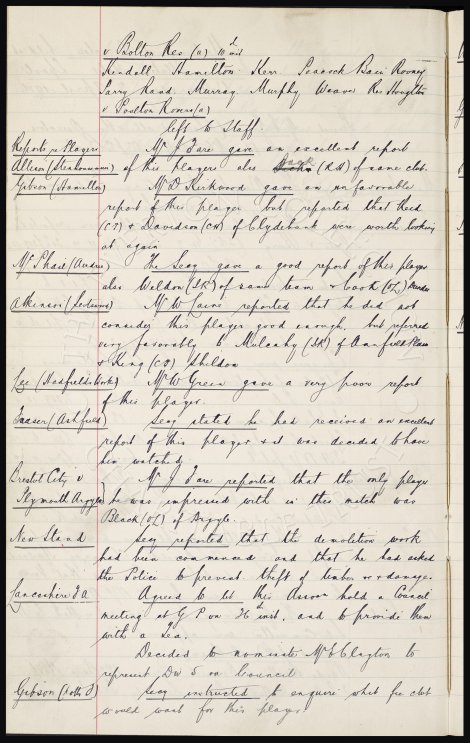 v Bolton Res (a) 10th inst
Kendall Hamilton Kerr Peacock Bain Rooney
Parry Rand Murray Murphy Weaver Res Houghton
v Poulton Rovers (a)
left to Staff.
Reports re Players
Mr J Fare gave an excellent report
Allison (Stenhousemuir) of this players also Jack (RH) of same club.
Gibson (Hamilton) Mr D Kirkwood gave an unfavorable
report of this player but reported that Reid
(CF) & Davidson (CH) of Clydebank were worth looking
at again
McPhail (Dundee) The Secy gave a good report of this player
also Weldon (IR) of same team & Cook (OL)
Atkinson (Ledsmar) Mr W Laine reported that he did not
consider this player good enough, but referred
very favorably to Mulcahy (IR) of Annfield Plain
& King (CF) Shildon
Lee (Hadfields Works) Mr W Green gave a very poor report
of this player.
Fraser (Ashfield) Secy stated he had received an excellent
report of this player & it was decided to have
him watched
Bristol City v Mr J Fare reported that the only player
Plymouth Argyle he was impressed with in this match was
Black (OL) of Argyle.
New Stand Secy reported that the demolition work
had been commenced and that he had asked
the Police to prevent theft of timber or damage.
Lancashire F A Agreed to let this Assocn hold a Council
meeting at G P on 26th inst, and to provide them
with a tea.
Decided to nominate Mr E Clayton to
represent Div 5 on Council
Gibson (Notts F) Secy instructed to enquire what fee club
would want for this player